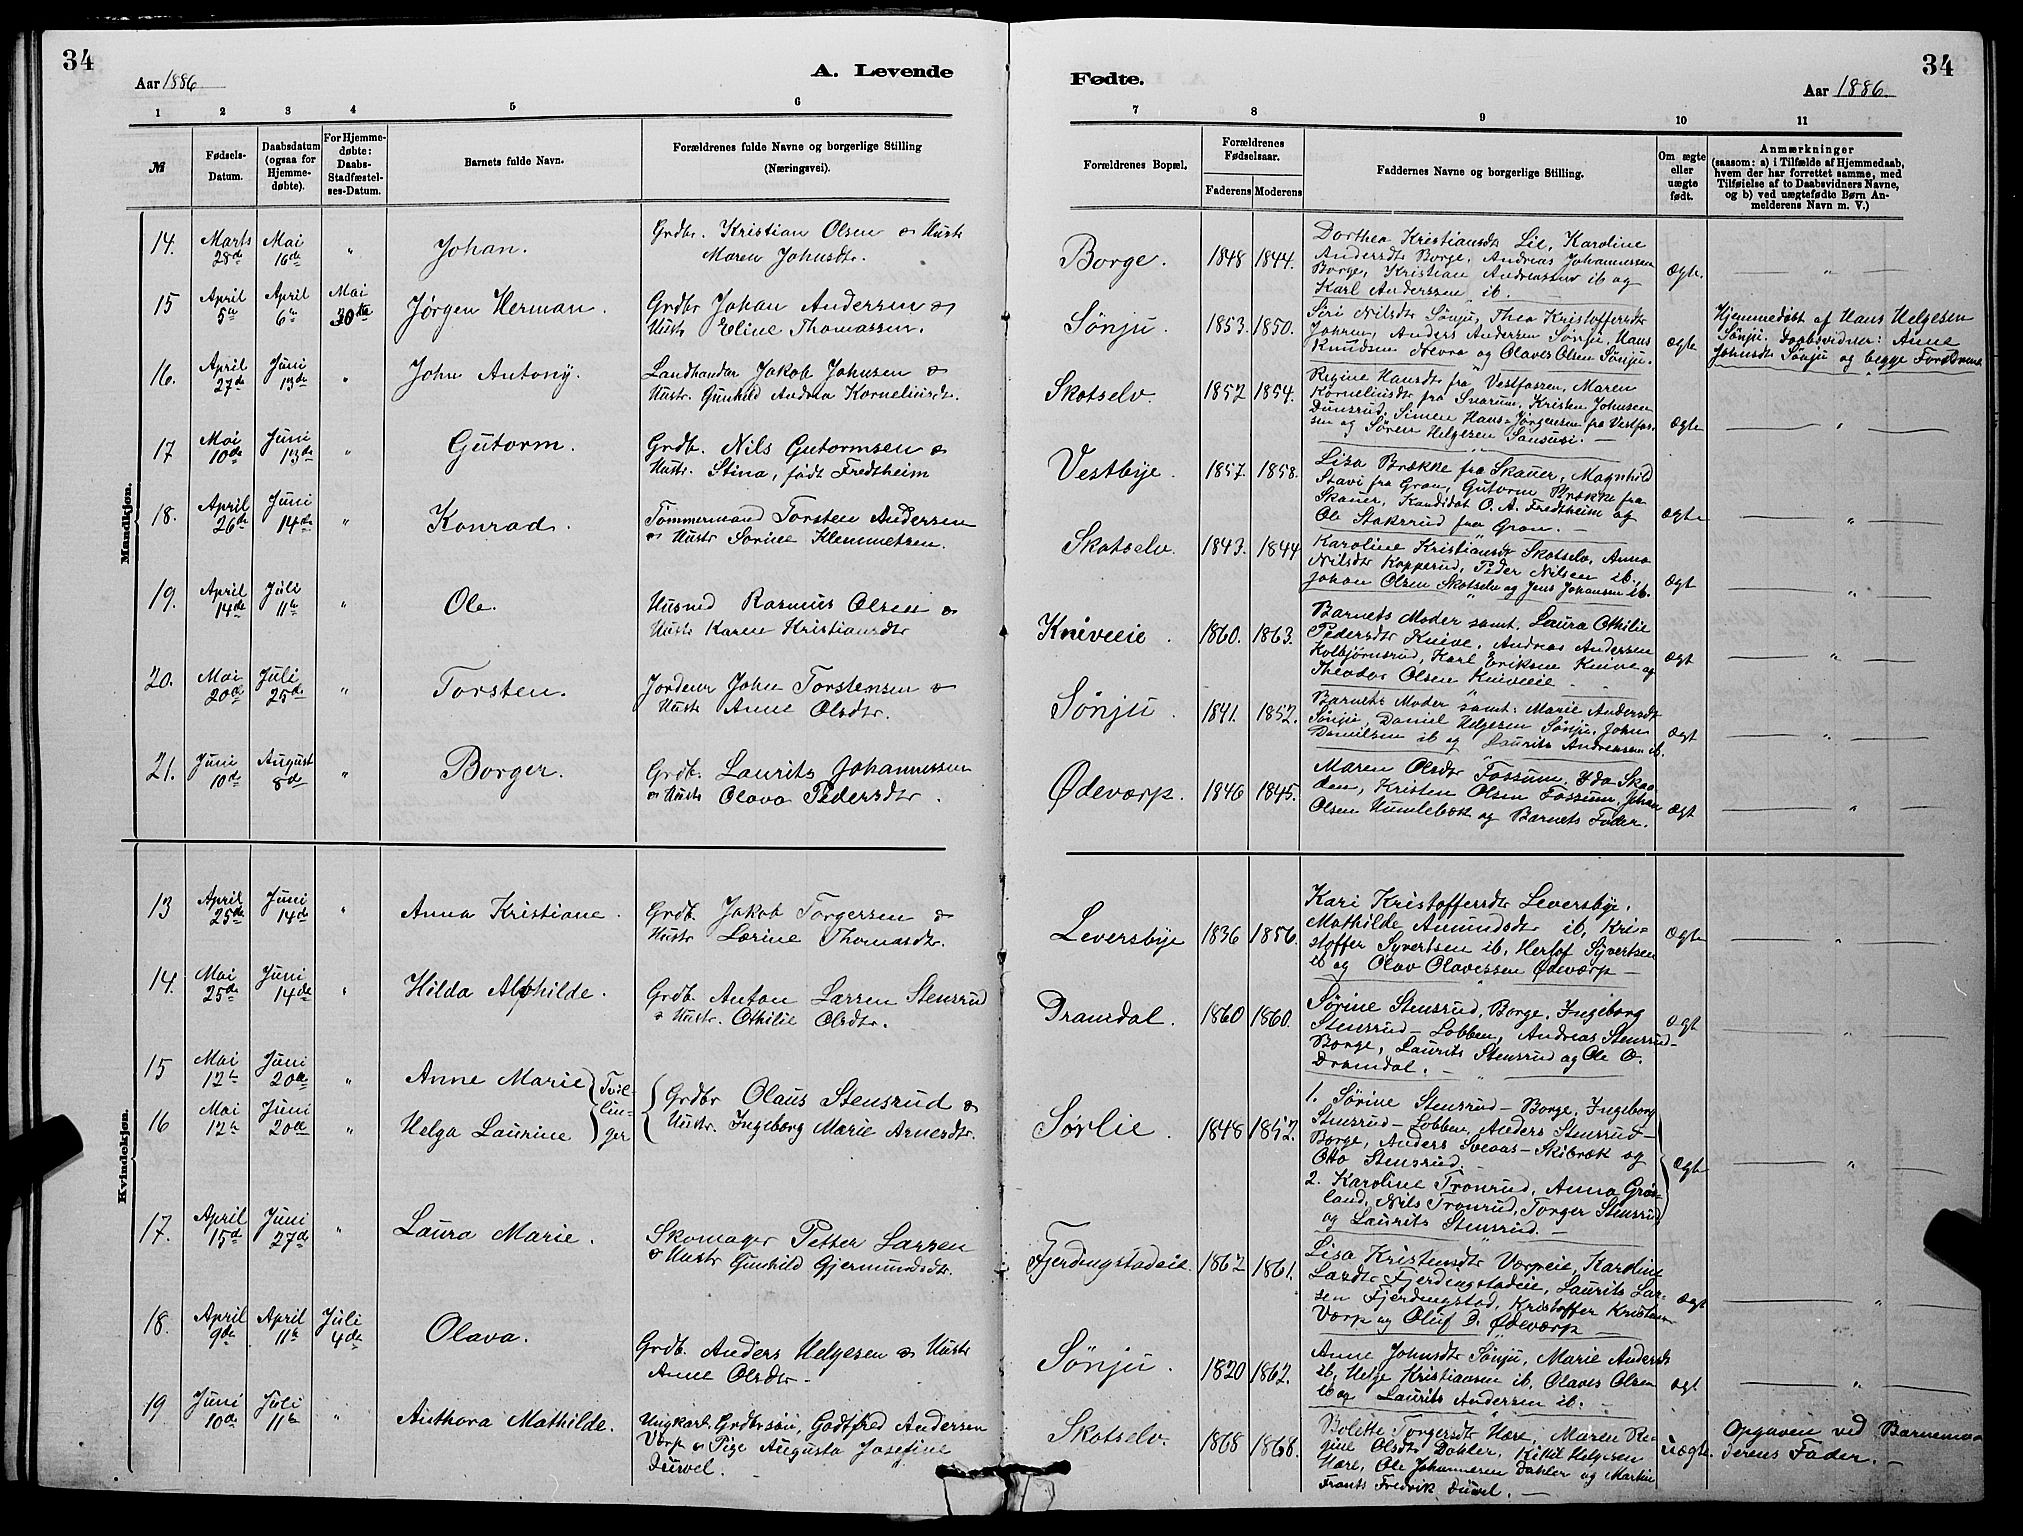 34
Aar 1886
A. Levende
1 2 3 4 5 6
№
Fødsels-
Datum.
Daabsdatum
(ogsaa for
Hjemme-
døbte).
For Hjemme-
døbte:
Daabs-
Stadfæstel-
ses-Datum.
Barnets fulde Navn.
Forældrenes fulde Navne og borgerlige Stilling
(Næringsvei).
Mandkjøn.
14. Marts 28de Mai 16de " Johan.
Grdbr. Kristian Olsen & Hustr
Maren Johnsdtr.
15 April 5te April 6te Mai 30te Jørgen Herman.
Grdbr Johan Andersen &
Hustr Eline Thomassen.
16. April 27de Juni 13de " John Antony.
Landhandler Jakob Johnsen &
Hustr. Gunhild Andrea Korneliusdt.
17 Mai 10de Juni 13de " Gutorm.
Grdb. Nils Gutormsen &
Hustr. Stina, født Fredtheim
18. April 26de Juni 14de " Konrad.
Tømmermand Torsten Andersen
& Hustr Sorine Klemmetsen.
19. April 14de Juli 11te " Ole.
Husmd Rasmus Olsen &
Hustr Karen Kristiansdtr
20. Mai 20de Juli 25de " Torsten.
John Torstensen &
Hustr Anne Olsdtr.
21. Juni 10de August 8de " Borger.
Grdb. Laurits Johannessen
& Hustr Olava Pedersdtr.
Kvindekjøn.
13 April 25de Juni 14de " Anna Kristiane.
Grdb. Jakob Torgersen &
Hustr Lorine Thomasdtr.
14. Mai 25de Juni 14de " Hilda Alvhilde.
Grdb. Anton Larsen Stensrud
& Hustr. Othilie Olsdtr.
15 Mai 12te Juni 20de " Anne Marie
16 Mai 12te Juni 20de " Helga Laurine
Tvil-
lin-
ger
Grdbr Olaus Stensrud &
Hustr. Ingeborg Marie Arnesdtr.
17. April 15de Juni 27de " Laura Marie.
Skomager Petter Larsen
& Hustr Gunhild Gjermundsdtr.
18. April 9de April 11te Juli 4de Olava.
Grdb. Anders Helgesen & Hustr
Anne Olsdtr.
19 Juni 10de Juli 11te " Anthora Mathilde.
Ungkarl Grdbrsøn Godtfred Andersen
Vorp & Pige Augusta Josefine
Duvel.
Fødte.
34
Aar 1886.
7 8 9 10 11
Forældrenes Bopæl.
Forældrenes
Fødselsaar.
Faderens Moderens
Faddernes Navne og borgerlige Stilling.
Om ægte
eller
uægte
født.
Anmærkninger
(saasom: a) i Tilfælde af Hjemmedaab,
hvem der har forrettet samme, med
Tilføielse af to Daabsvidners Navne,
og b) ved uægtefødte Børn An-
melderens Navn m. V.)
Borge. 1848 1844.
Dorthea Kristiansdt Lie, Karoline
Andersdtr Borge, Andreas Johannessen
Borge, Kristian Andreassen ib og
Karl Anderssen ib.
ægte. "
Sønju. 1853. 1850.
Siri Nilsdtr Sønju, Thea Kristoffersdtr
Anders Andersen Sønju, Hans
Knudsen og Olaves Olsen Sønju.
ægte
Hjemmedøbt af Hans Helgesen
Sønju. Daabsvidner: Anne
Johnsdt Sønju og begge Forældrene
Skotselv. 1852 1854.
Regine Hansdtr fra Vestfossen, Maren
Korneliusdtr fra Snarum, Kristen Johnsen
Dunsrud, Simen Hans-Jørgensen fra Vestfos-
sen og Søren Helgesen Sansusi.
ægte "
Vestbye. 1857. 1858.
Lisa Brække fra Skauer, Magnhild
Stavi fra Gran, Gutorm Brække fra
Skauer, Kandidat O. A. Fredtheim og
Ole Stakerud fra Gran.
ægte "
Skotselv. 1843. 1844
Karoline Kristiansdt Skotselv, Anna
Nilsdtr Kopperud, Peder Nilsen ib.,
Johan Olsen Skotselv og Jens Johansen ib.
ægt "
Kniveeie. 1860. 1863.
Barnets Moder samt. Laura Othilie
Pedersdtr Knive, Andreas Andersen
Kolbjørnsrud, Karl Eriksen Knive og
Theodor Olsen Kniveeie
ægt "
Sønju. 1841. 1852.
Barnets Moder samt: Marie Andersdt
Sønju, Daniel Helgesen Sønju, John
Danielsen ib og Laurits Andreasen ib.
ægt "
Ødevorp. 1846 1845.
Maren Olsdtr Fossum, Ida Skao-
den, Kristen Olsen Fossum, Johan
Olsen Humlebæk og Barnets Fader.
ægt "
Leversbye 1836 1856.
Kari Kristoffersdtr Leversbye,
Mathilde Amundsdt ib, Kri-
stoffer Syvertsen ib, Herlof Syvertsen
ib og Olav Olavessen Ødevorp
ægte "
Dramdal. 1860 1860.
Sørine Stensrud, Borge, Ingeborg
Stensrud-Lobben, Andreas Stensrud-
Borge, Laurits Stensrud og Ole O.
Dramdal.
ægt "
Sørlie. 1848 1852.
1. Sørine Stensrud-Borge, Ingeborg
Stensrud-Lobben, Anders Stensrud-
Borge, Anders Svevas-Skibræk og
Otto Stensrud.
2. Karoline Tronrud, Anna Grøs-
land, Nils Tronrud, Torger Stensrud
og Laurits Stensrud.
ægte "
Fjerdingstadeie. 1862 1861.
Lisa Kristensdt Vorpeie, Karoline
Larsdtr Fjerdingstadeie, Laurits Lar-
sen Fjerdingstad, Kristoffer Kristensen
Vorp og Oluf P. Ødevorp
ægt "
Sønju. 1820 1862.
Anne Johnsdtr Sønju, Marie Andersdt
ib, Helge Kristiansen ib, Olaves Olsen
ib og Laurits Andersen ib.
ægt "
Skotselv. 1868 1868.
Bolette Torgersdt Hære, Maren Re-
gine Olsdtr Dahler, Kittil Helgesen
Hære, Ole Johannesen Dahler og Martin
Frants Fredrik Duvel.
uægte.
Opgaven ved Barnemo-
derens Fader.